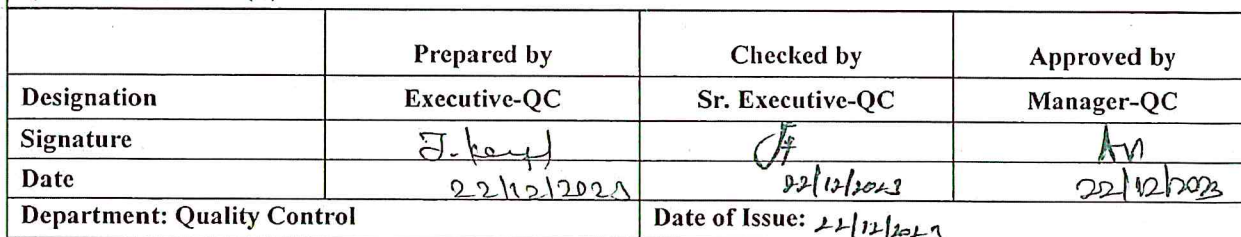 Prepared by Checked by Approved by
Designation Executive-QC Sr. Executive-QC Manager-QC
Signature
Date 22/12/2023 22/12/2023 22/12/2023
Department: Quality Control Date of Issue: 22/12/2023